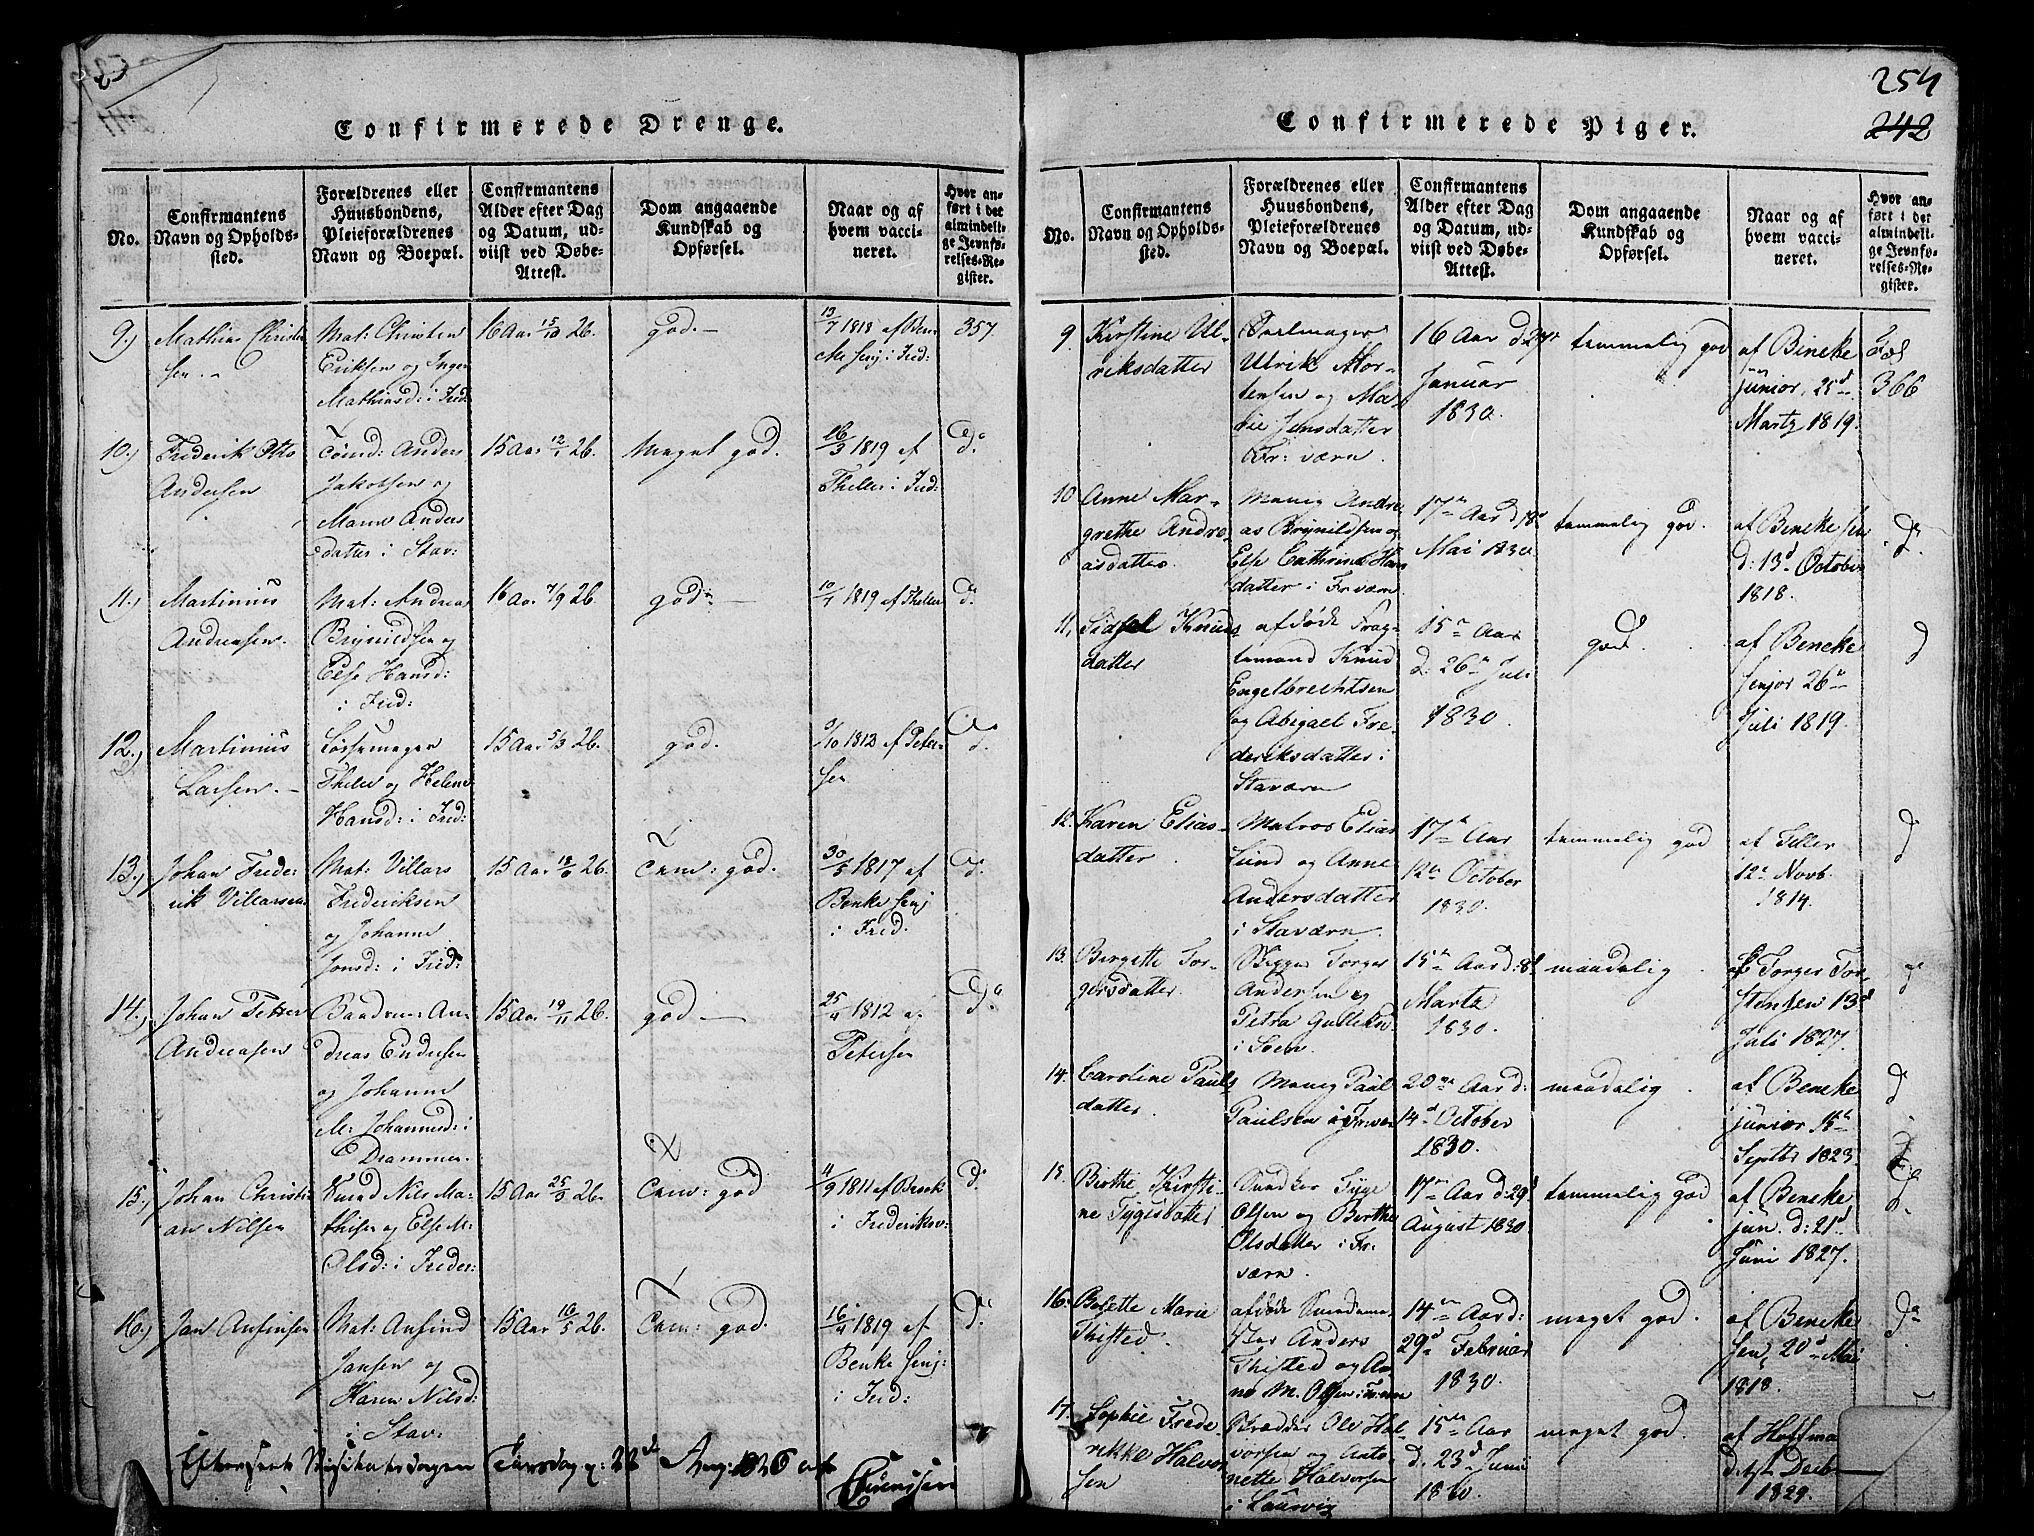 254
242
Confirmerede Drenge.
No.
Confirmantens
Navn og Opholds-
sted.
Forældrenes eller
Huusbondens,
Pleieforældrenes
Navn og Boepæl.
Confirmantens
Alder efter Dag
og Datum, ud-
viist ved Døbe-
Attest.
Dom angaaende
Kundskab og
Opførsel.
Naar og af
hvem vacci-
neret.
Hvor an-
ført i det
almindeli-
ge Jevnfø-
relses-Re-
gister.
9.)
Mathias Christen
sen
Mat: Christen
Eriksen og Inger
Mathiasd: i Fred:
16 Aar 15/10 26.
god.
13/7 1818 af
Senj: i Fred:
357
10.)
Frederik Otto
Andersen
Anders
Jakobsen og
Maren Anders
datter i Stav:
15 Aar 12/1 26.
Meget god.
16/3 1819 af
Theller i Fred:
do
11.)
Martinius
Andreasen.
Mat: Andreas
Brynildsen og
Else Hansd:
i Fred:
16 Aar 7/9 26
god
10/7 1819 af Theller
d.
12.)
Martinius
Larsen.
Theler og Helene
Hansd: i Fred:
15 Aar 5/3 26.
god.
9/10 1812 af Peter-
sen
d.
13.)
Johan Frede-
rik Villarsen
Mat: Villars
Frederiksen
og Johanne
Jonsd: i Fred:
15 Aar 18/6 26.
Tem: god.
30/5 1817 af
Benke Senj
i Fred.
do.
14.)
Johan Petter
Andreasen
Baadsm: An-
dreas Endresen
og Johanne
M: Johannesd: i
Drammen.
15 Aar 19/11 26.
god.
25/4 1812 af
Petersen
do
15.)
Johan Christi-
an Nilsen
Nils Ma-
thisen og Else M:
Olsd: i Freder:
15 Aar 25/9 26.
Tem: god
4/9 1811 af
i Frederiksv:
d.
16.)
Jan Ansinsen
Mat: Ansind
Jansen og
Karen Nilsd:
i Stav:
15 Aar 16/5 26.
Tem: god.
16/4 1819 af
Benke Senj:
i Fred:
do
Efterseet Visitatsdagen Torsdag
Aug: 1826 af
Confirmerede Piger.
No.
Confirmantens
Navn og Opholds-
sted.
Forældrenes eller
Huusbondens,
Pleieforældrenes
Navn og Boepæl.
Confirmantens
Alder efter Dag
og Datum, ud-
viist ved Døbe-
Attest.
Dom angaaende
Kundskab og
Opførsel.
Naar og af
hvem vacci-
neret.
Hvor an-
ført i det
almindeli-
ge Jevnfø-
relses-Re-
gister.
9.
Kirstine Ul-
riksdatter
Ulrik Mor-
tensen og Ma-
rie Jensdatter
Fr: værn.
16 Aar d. 24
Januar
1830.
temmelig god
af Bineke
junior, 25d
Martz 1819.
Fol
366
10
Anne Mar-
grethe Andre-
asdatter.
Andre-
as Brynildsen og
Else Cathrine Hans
datter i Fr værn.
17 Aar d 18d
Mai 1830
temmelig god.
af Beneke sen
d: 13d October
1818.
do
11.
Sidsel Knuds
datter
afdøde Frag-
temand Knud
Engelbrechtsen
og Abigael Fre-
deriksdatter i
Staværn
15 Aar
d. 26 Juli
1830.
god.
af Beneke
senjor 26
Juli 1819.
d
12.
Karen Elias-
datter
Matros Elias
Lund og Anne
Andersdatter
i Staværn.
17 Aar
12 October
1830.
temmelig god
af Teller
12 Novb.
1814.
d
13.
Birgitte Tor-
gersdatter.
Torger
Andersen og
Petra Gulleksd
i Soen.
15 Aar d: 8d
Martz
1830.
maadelig
af Torger Tor-
stensen 13d
Juli 1827.
14.
Caroline Pauls
datter
Paul
Paulsen i Fr: værn
20 Aar d:
14d October
1830.
maadelig
af Beneke
junior 15
Septbr 1823.
d
15.
Birthe Kirsti-
ne Tygesdatter
Tyge
Olsen og Berthe
Olsdatter i Fr:
værn.
17 Aar d: 29d
August 1830
temmelig god
af Beneke
jun. d: 21d
Juni 1827.
d.
16.
Bolette Marie
Thisted.
afdøde
Anders
Thisted og An-
ne M. Olsen i Fr:værn
14 Aar d:
29d Februar
1830.
meget god.
af Beneke
sen, 20d Mai
1818.
do
17.
Sophie Frede
rikke Halvor
sen
Ole Hal-
vorsen og Anto-
nette Halvorsen
i Laurvig
15 Aar
d. 23d Juni
1830.
meget god.
af Hoffma
d. 1st Decbr
1829.